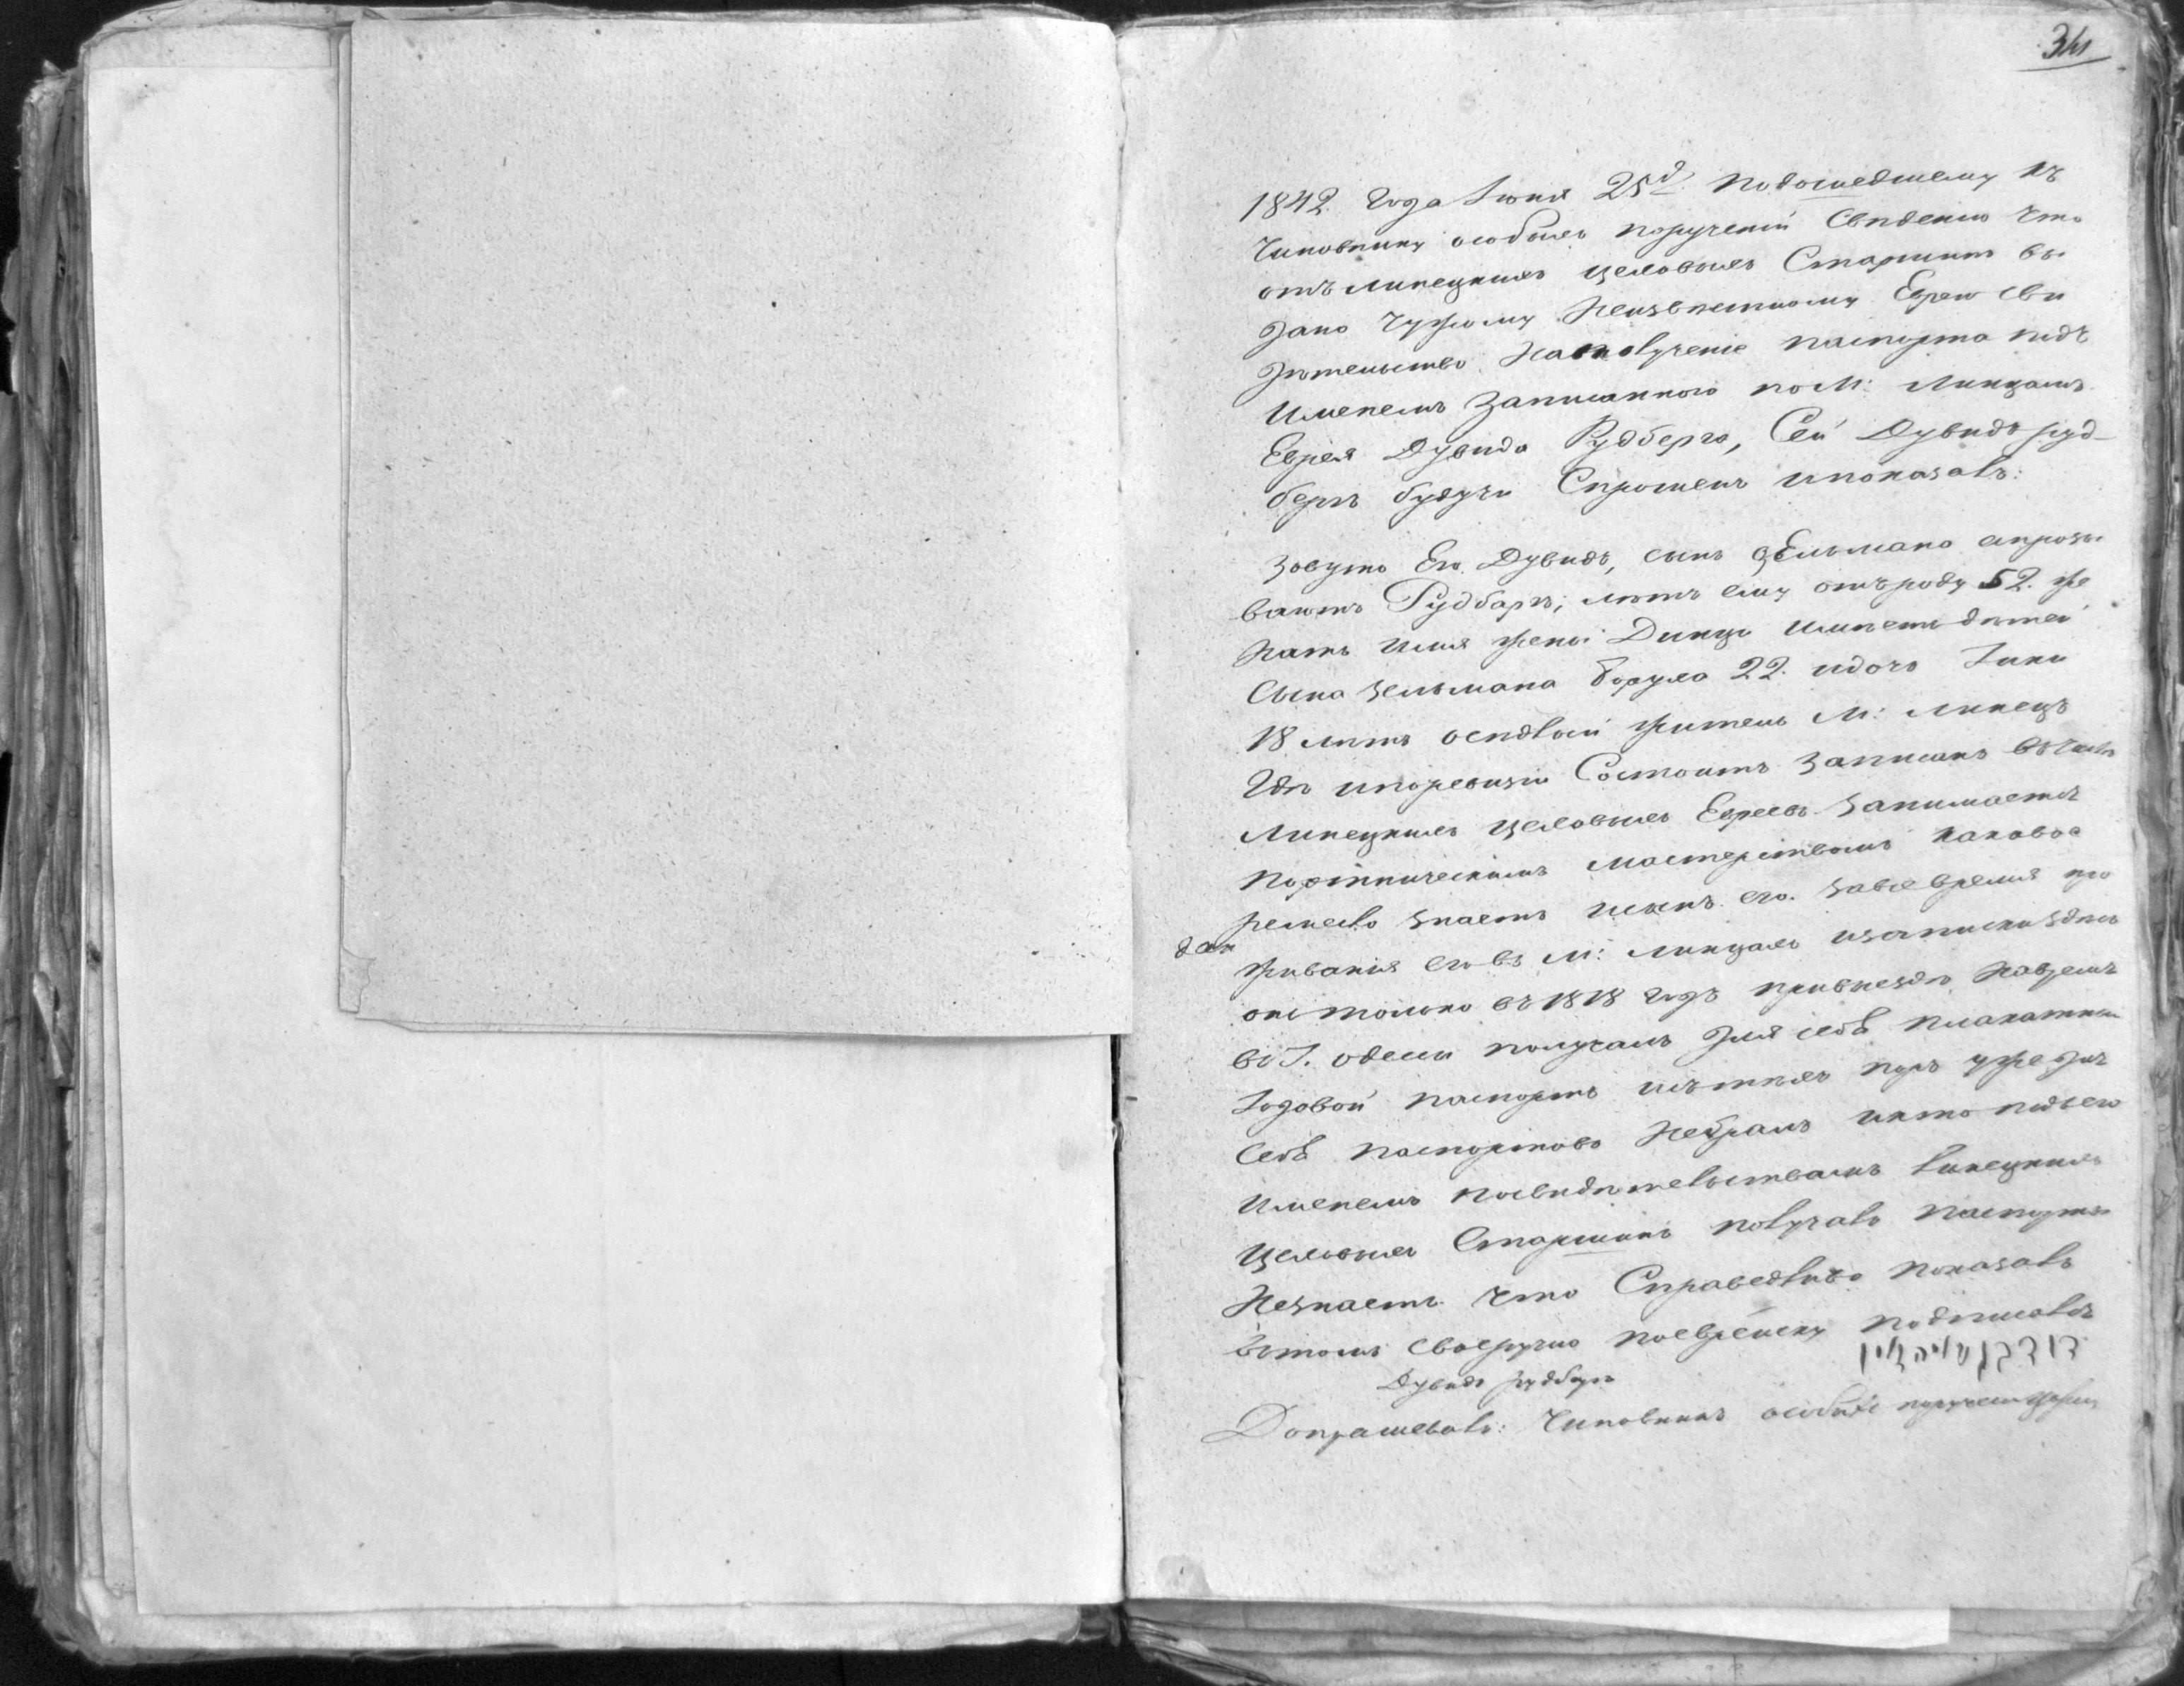 34
1842 года Июня 25д. по дошедшему къ
Чиновнику особыхъ порученій Свѣденію что
отъ липецкихъ цеховыхъ Старшинъ вы
дано чужому Неизвѣстному Еврею сви
дѣтельство На получение паспорта подъ
Именемъ Записанного по М: Липцамъ
Еврея Дувида Рудберга, Сей Дувидъ руд-
бергъ будучи Спрошенъ и показалъ:
Зовутъ Его Дувидъ, сынъ Зельмана а прозы
ваютъ Рудбаргъ; лѣтъ ему отъ роду 52. же
натъ имя жены Динци имѣетъ дѣтей
Сына Зельмана Боруха 22. и дочь
18 лѣтъ осѣдлый житель М: липецъ
Гдѣ и по ревизіи Состоитъ Записанъ
Липецкихъ Цеховыхъ Евреевъ. Занимается
Портническимъ мастерствомъ каковое
ремесло знаетъ и сынъ его. За все время про
живанія его въ М: липцахъ и записки здѣсь
онъ только въ 1818 годъ при выездѣ На время
въ Г. Одессы получалъ для себя плакатный
Годовой паспортъ и съ тѣхъ поръ уже для
Себя паспортовъ Не бралъ и кто подъ его
Именемъ по свидѣтельствамъ липецкихъ
Цеховыхъ Старшинъ получалъ паспорты
Не знаетъ что Справедливо показалъ
въ томъ своеручно по еврейску подписался
Дувидъ рудбергъ
Допрашивалъ: Чиновникъ особыхъ